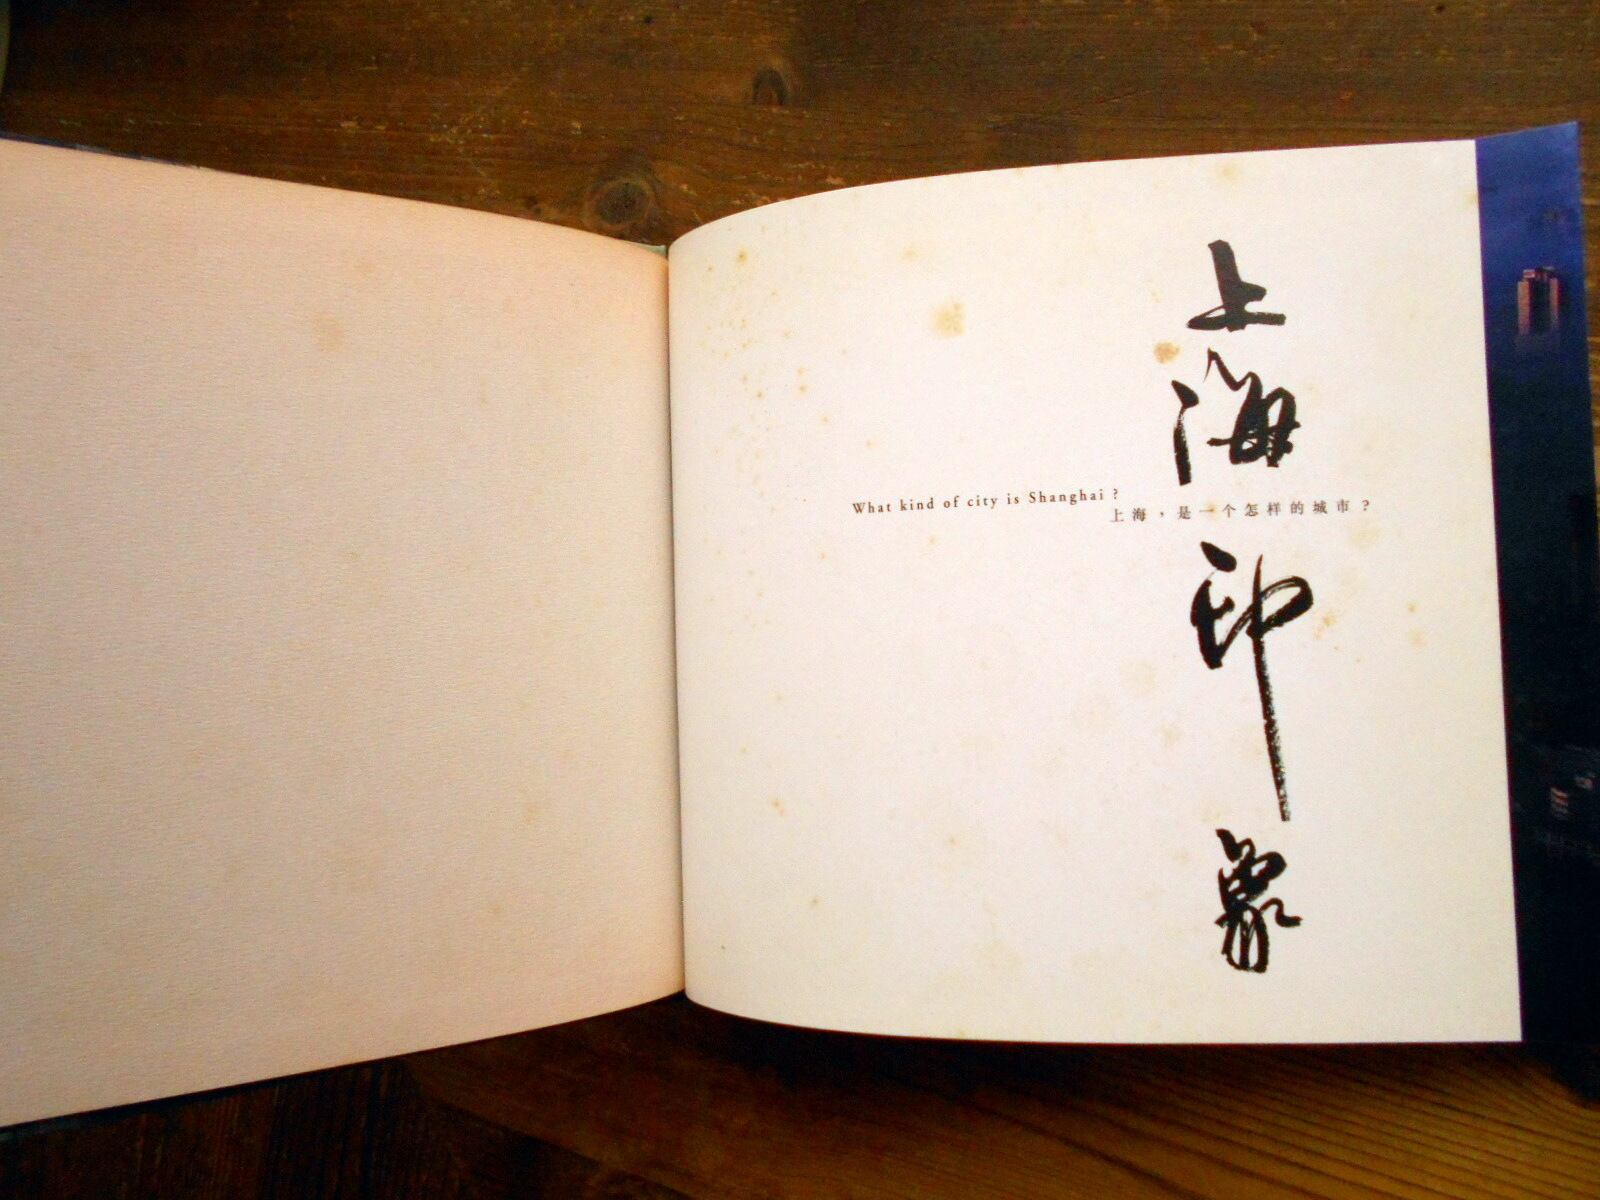 上海印象
What kind of city is Shanghai ?
上海，是一个怎样的城市？